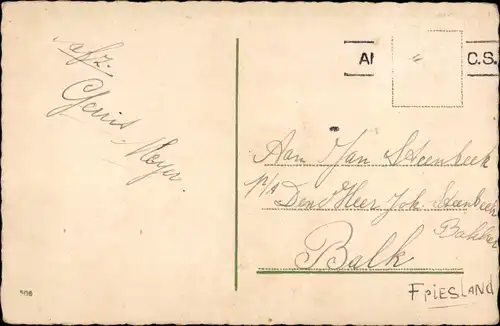 afz.
Meyer.
A C.S.
Aan Jan Steenbeek
p/a Den Heer Joh. Steenbeek
Bakker
Balk
FRIESLAND
506